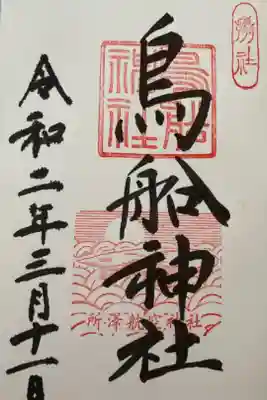 鳥船神社
鳥船
神社
所澤航空神社
令和二年三月十一日